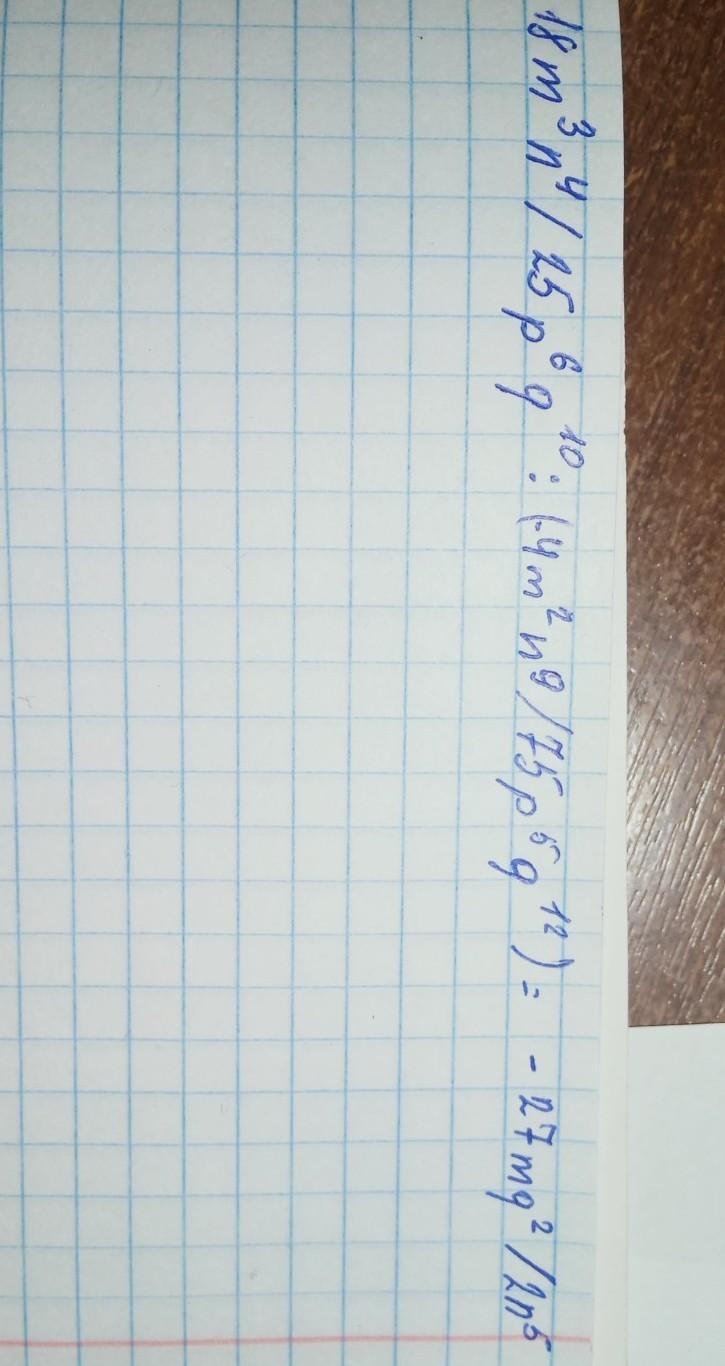 18m³n⁴/25p⁶q¹⁰:(-4m²n⁹/75p⁵q¹²)= -27mq²/2n⁵